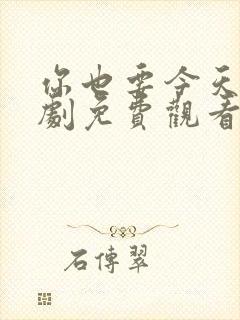 你也要今天
劇免費觀看
石傳翠